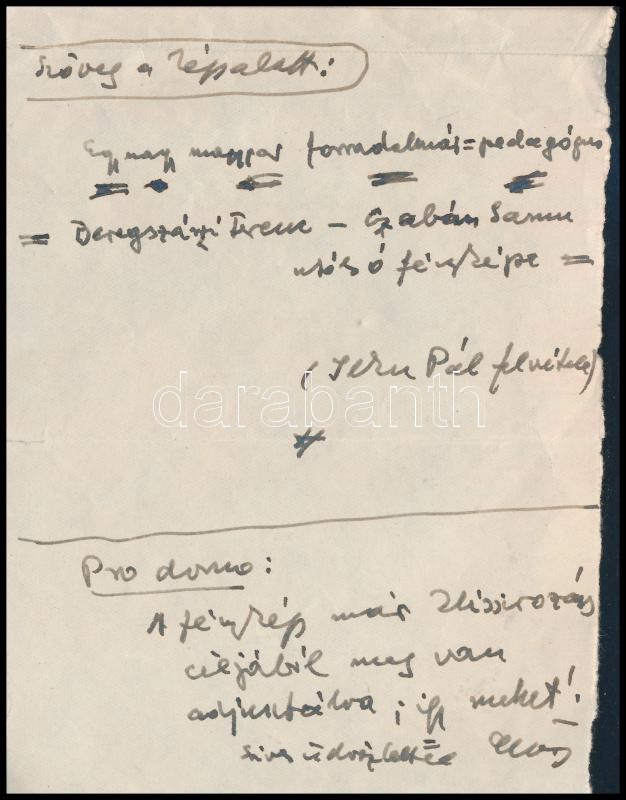 Szöveg a képalatt:
Egy nagy magyar forradalmár=pedagógus
= Beregszászi Ferenc – Czabán Samu
utolsó fényképe =
( Pál felvétele)
darabanth
Pro domo:
A fénykép már klissirozás
céljából meg van
adjusztálva; így mehet!
Szives üdvözlettel